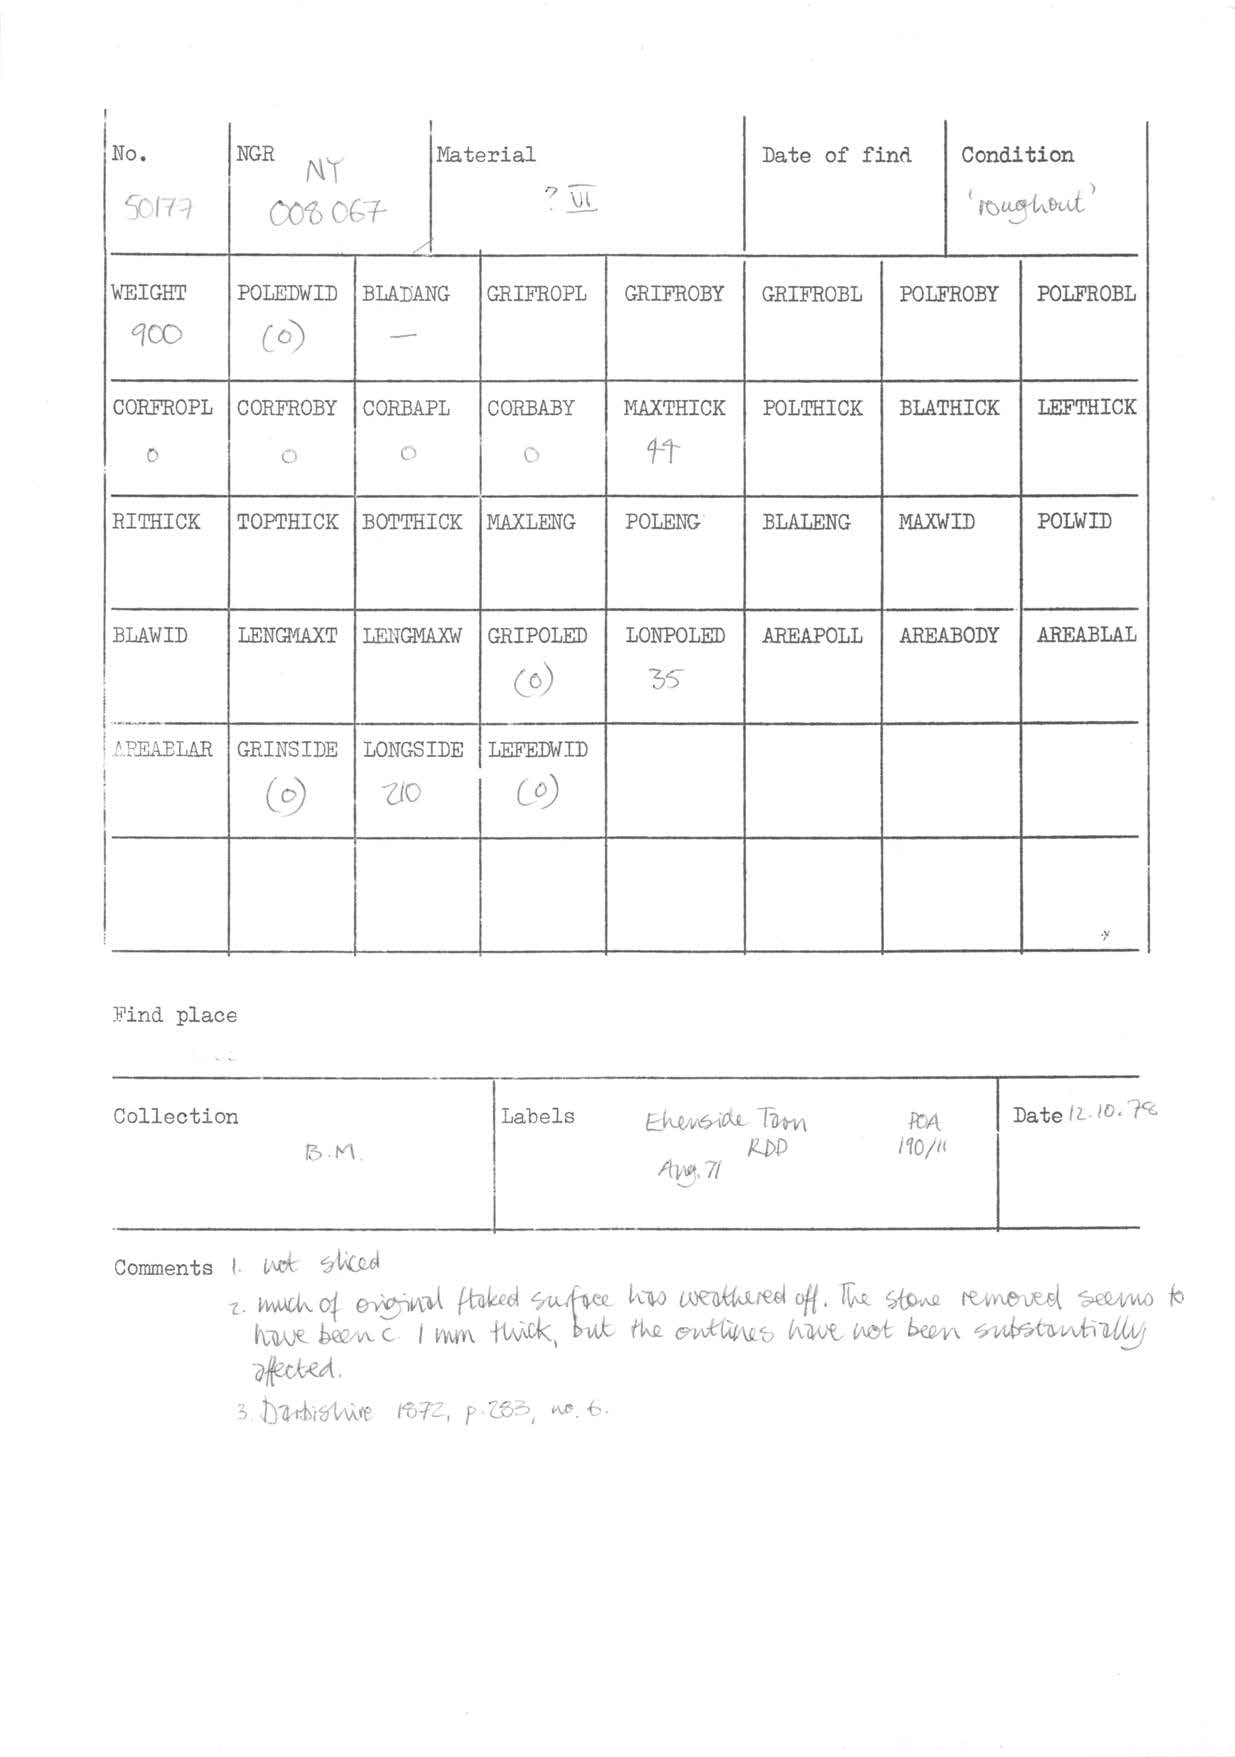 No. NGR Material Date of find Condition
NY
50177 008 067 ? VI 'roughout'
WEIGHT POLEDWID BLADANG GRIFROPL GRIFROBY GRIFROBL POLFROBY POLFROBL
900 (0) —
CORFROPL CORFROBY CORBAPL CORBABY MAXTHICK POLTHICK BLATHICK LEFTHICK
0 0 0 0 44
RITHICK TOPTHICK BOTTHICK MAXLENG POLENG BLALENG MAXWID POLWID
BLAWID LENGMAXT LENGMAXW GRIPOLED LONPOLED AREAPOLL AREABODY AREABLAL
(0) 35
AREABLAR GRINSIDE LONGSIDE LEFEDWID
(0) 210 (0)
Find place
Collection Labels Ehenside Tarn POA Date 12.10.78
B.M. RDD 190/11
Aug. 71
Comments 1. not sliced
2. much of original flaked surface has weathered off. The stone removed seems to
have been c. 1 mm thick, but the outlines have not been substantially
affected.
3. Darbishire 1872, p.283, no. 6.